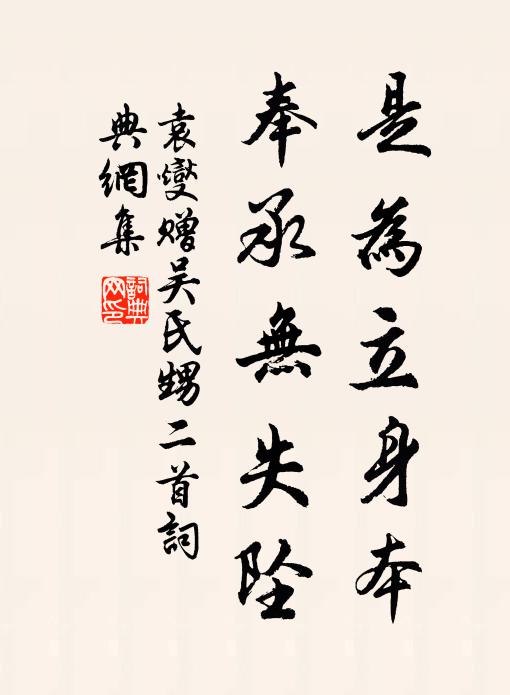 是為立身本
奉承無失墜
袁燮贈吴氏甥二首詞
典網集
詞典
网印